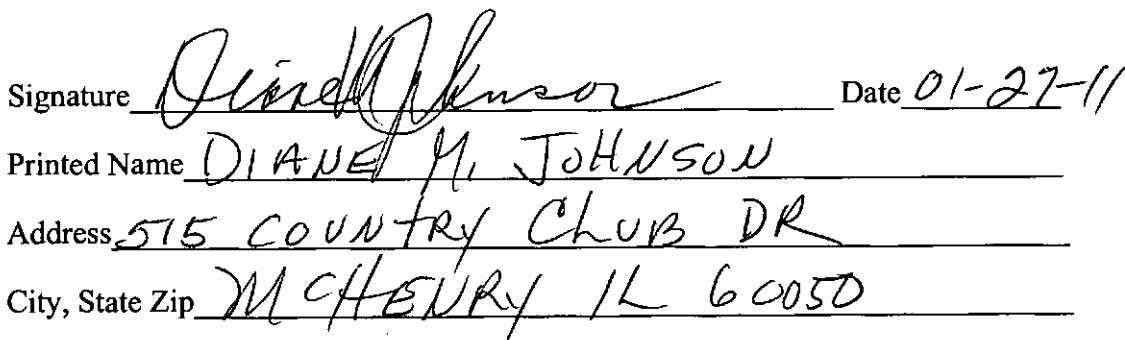 Signature Diane M Johnson Date 01-27-11
Printed Name DIANE M. JOHNSON
Address 515 COUNTRY CLUB DR
City, State Zip MCHENRY IL 60050